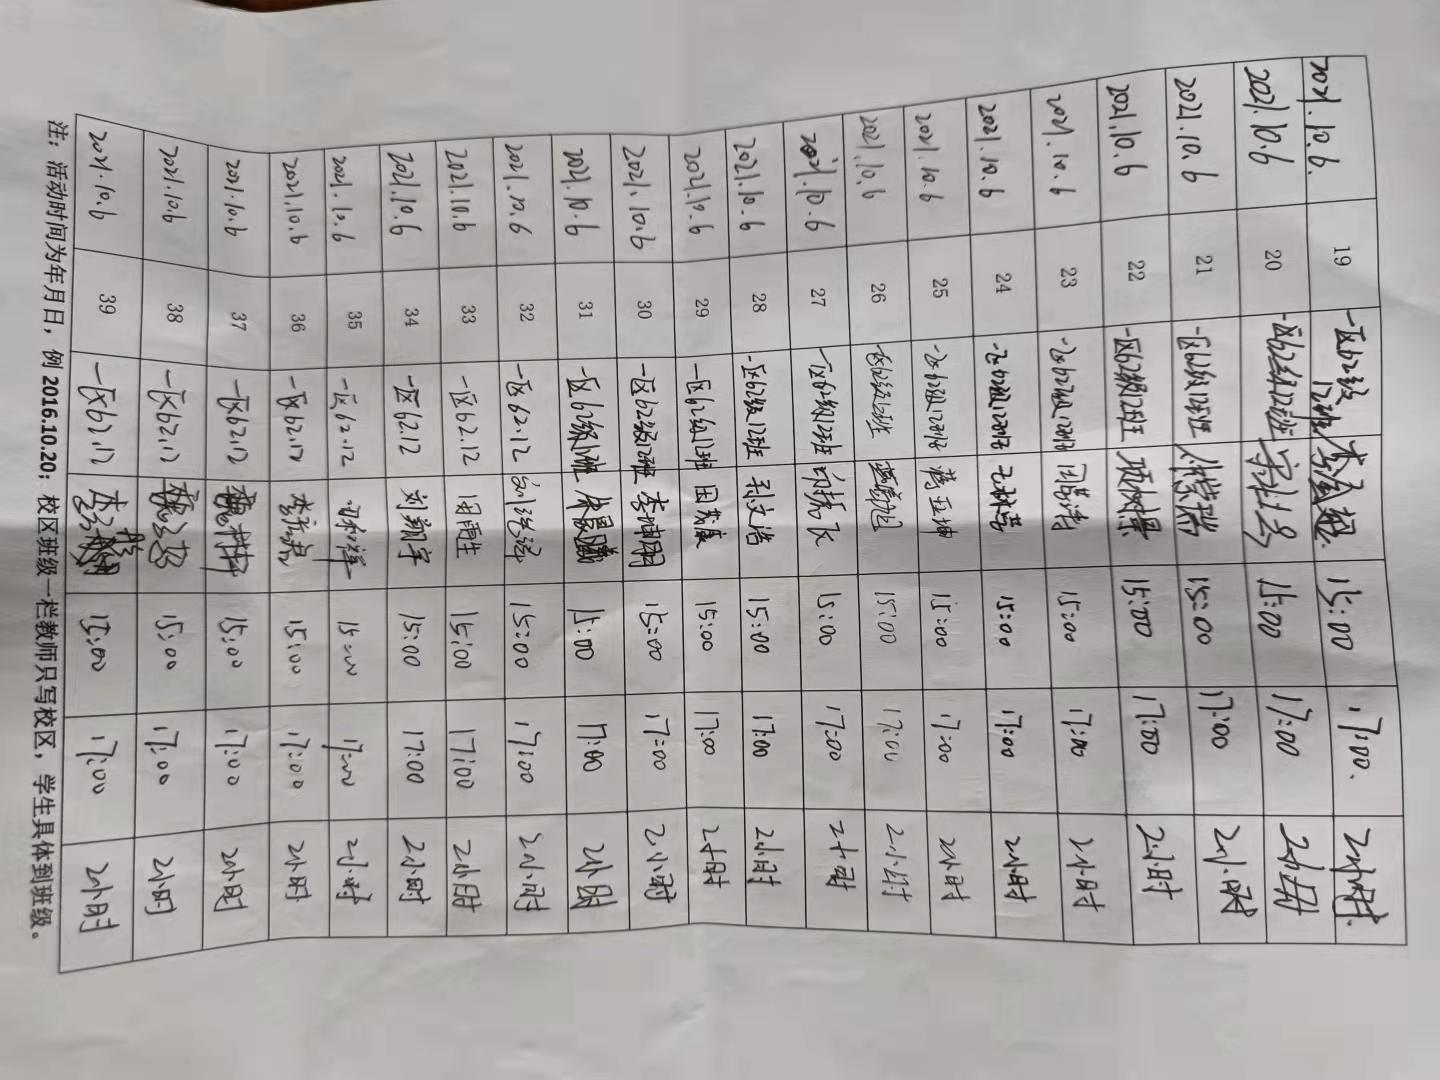 2021.10.6. 19 一区62级12班 李金超 15:00 17:00. 2小时.
2021.10.6 20 一区62级12班 15:00 17:00 2小时
2021.10.6 21 一区62级12班 15:00 17:00 2小时
2021.10.6 22 一区62级12班 15:00 17:00 2小时
2021.10.6 23 一区62级12班 15:00 17:00 2小时
2021.10.6 24 一区62级12班 15:00 17:00 2小时
2021.10.6 25 一区62级12班 15:00 17:00 2小时
2021.10.6 26 一区62级12班 15:00 17:00 2小时
2021.10.6 27 一区62级12班 15:00 17:00 2小时
2021.10.6 28 一区62级12班 15:00 17:00 2小时
2021.10.6 29 一区62级12班 15:00 17:00 2小时
2021.10.6 30 一区62级12班 李坤朋 15:00 17:00 2小时
2021.10.6 31 一区62级12班 15:00 17:00 2小时
2021.10.6 32 一区62.12 15:00 17:00 2小时
2021.10.6 33 一区62.12 田雨生 15:00 17:00 2小时
2021.10.6 34 一区62.12 刘翔宇 15:00 17:00 2小时
2021.10.6 35 一区62.12 15:00 17:00 2小时
2021.10.6 36 一区62.12 15:00 17:00 2小时
2021.10.6 37 一区62.12 15:00 17:00 2小时
2021.10.6 38 一区62.12 15:00 17:00 2小时
2021.10.6 39 一区62.12 15:00 17:00 2小时
注：活动时间为年月日，例 2016.10.20；校区班级一栏教师只写校区，学生具体到班级。